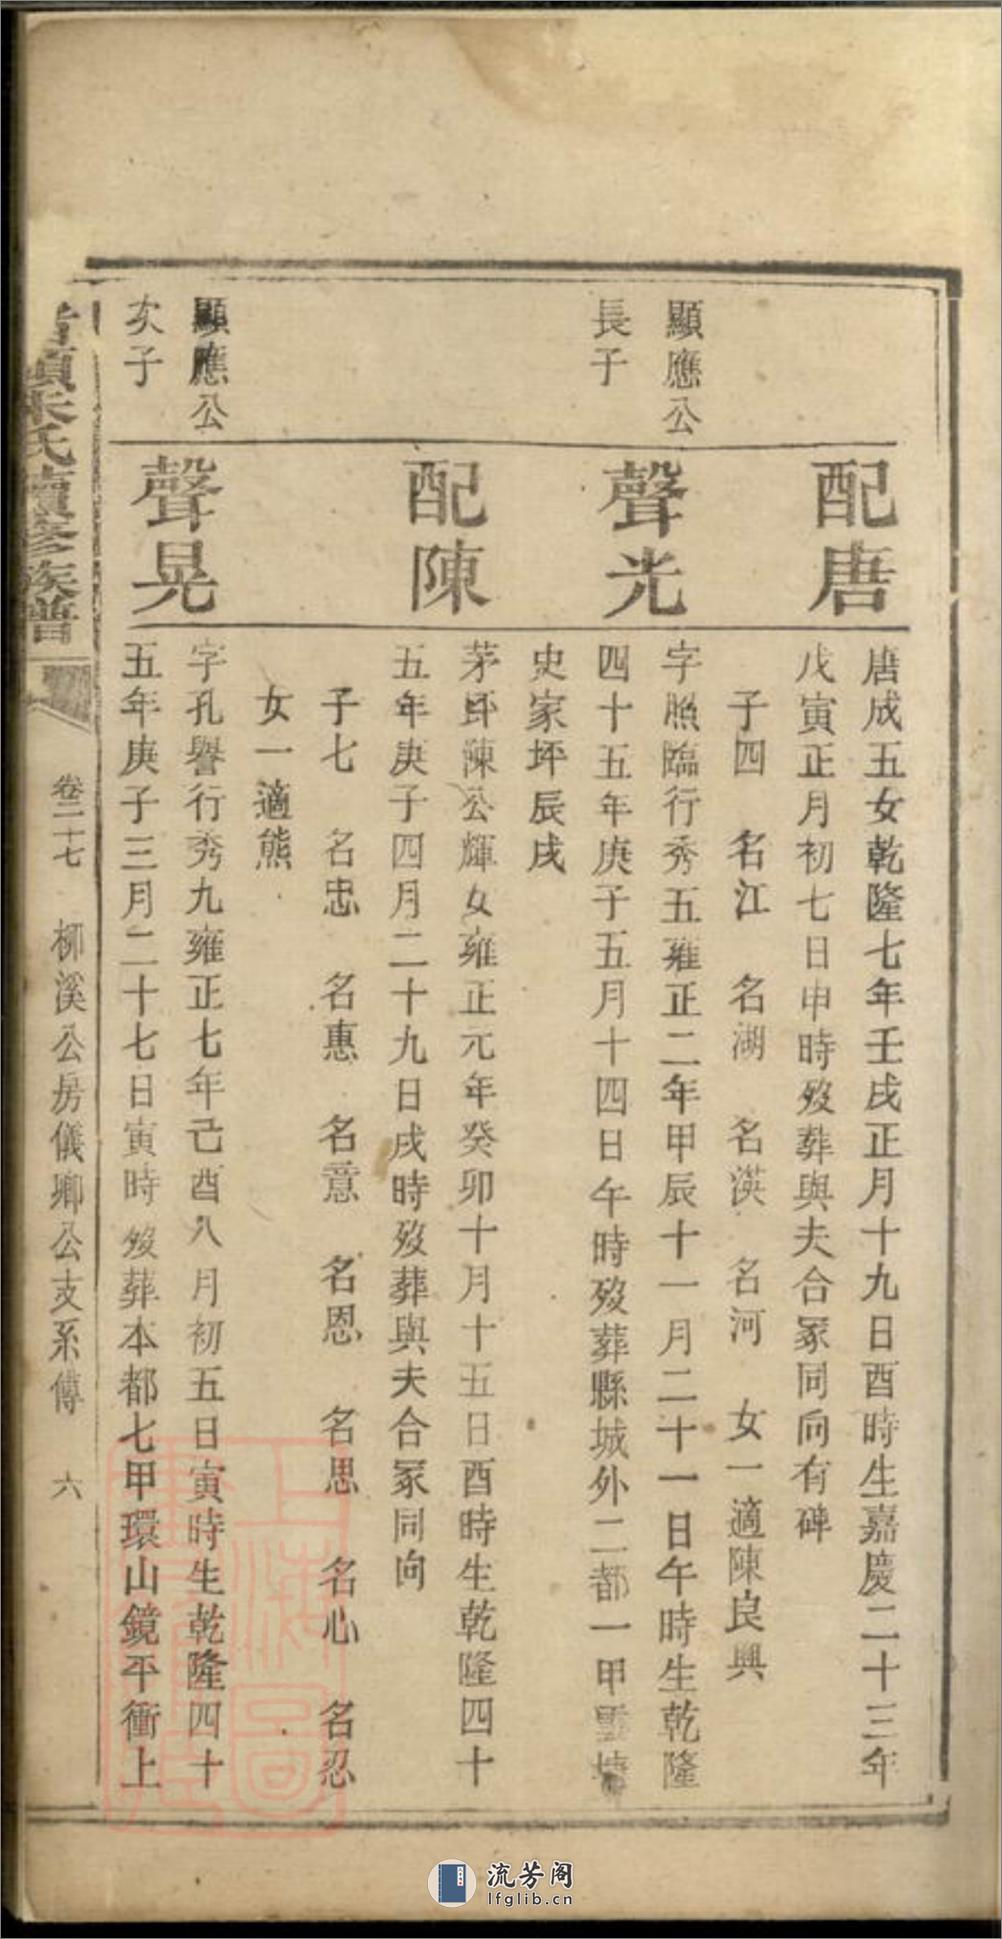 配唐
唐成五女乾隆七年壬戌正月十九日酉時生嘉慶二十三年
戊寅正月初七日申時歿葬與夫合冢同向有碑
子四 名江 名湖 名渶 名河 女一適陳良興
顯應公
長子
聲光
字照臨行秀五雍正二年甲辰十一月二十一日午時生乾隆
四十五年庚子五月十四日午時歿葬縣城外二都一甲
史家坪辰戌
配陳
茅𠂤陳公輝女雍正元年癸卯十月十五日酉時生乾隆四十
五年庚子四月二十九日戌時歿葬與夫合冢同向
子七 名忠 名惠 名意 名恩 名思 名心 名忍
女一適熊
顯應公
次子
聲晃
字孔譽行秀九雍正七年己酉八月初五日寅時生乾隆四十
五年庚子三月二十七日寅時歿葬本都七甲環山鏡平衝上
朱氏續修族譜
卷二十七 柳溪公房儀卿公支系傳 六
上海圖書館藏
流芳阁
lfglib.cn